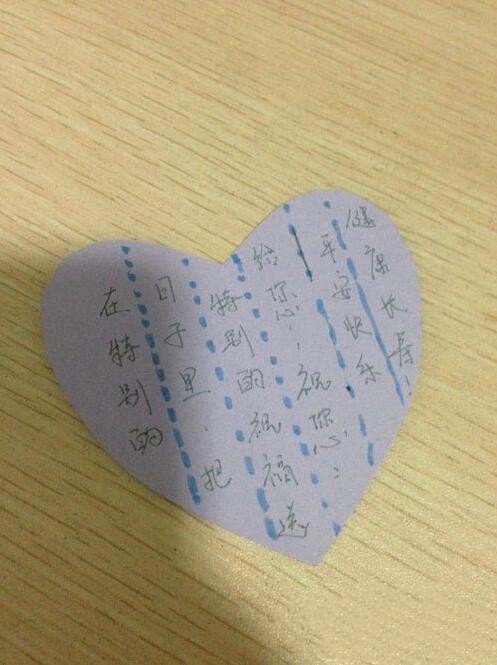 在特别的
日子里，把
特别的祝福送
给您！祝您：
平安快乐
健康长寿！